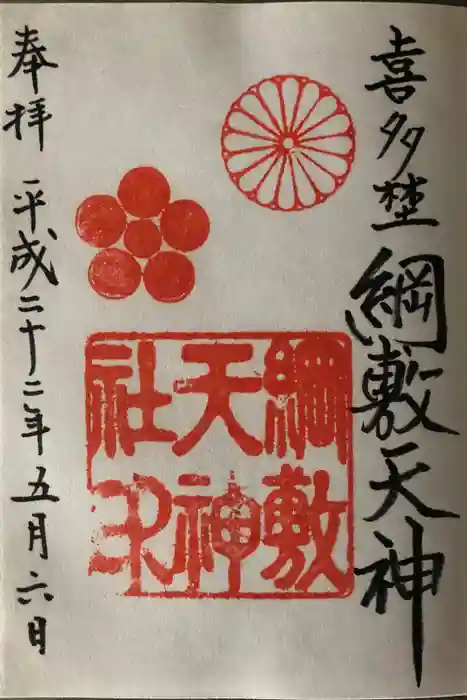 喜多埜綱敷天神
綱敷
天神
社印
奉拝 平成二十二年五月六日